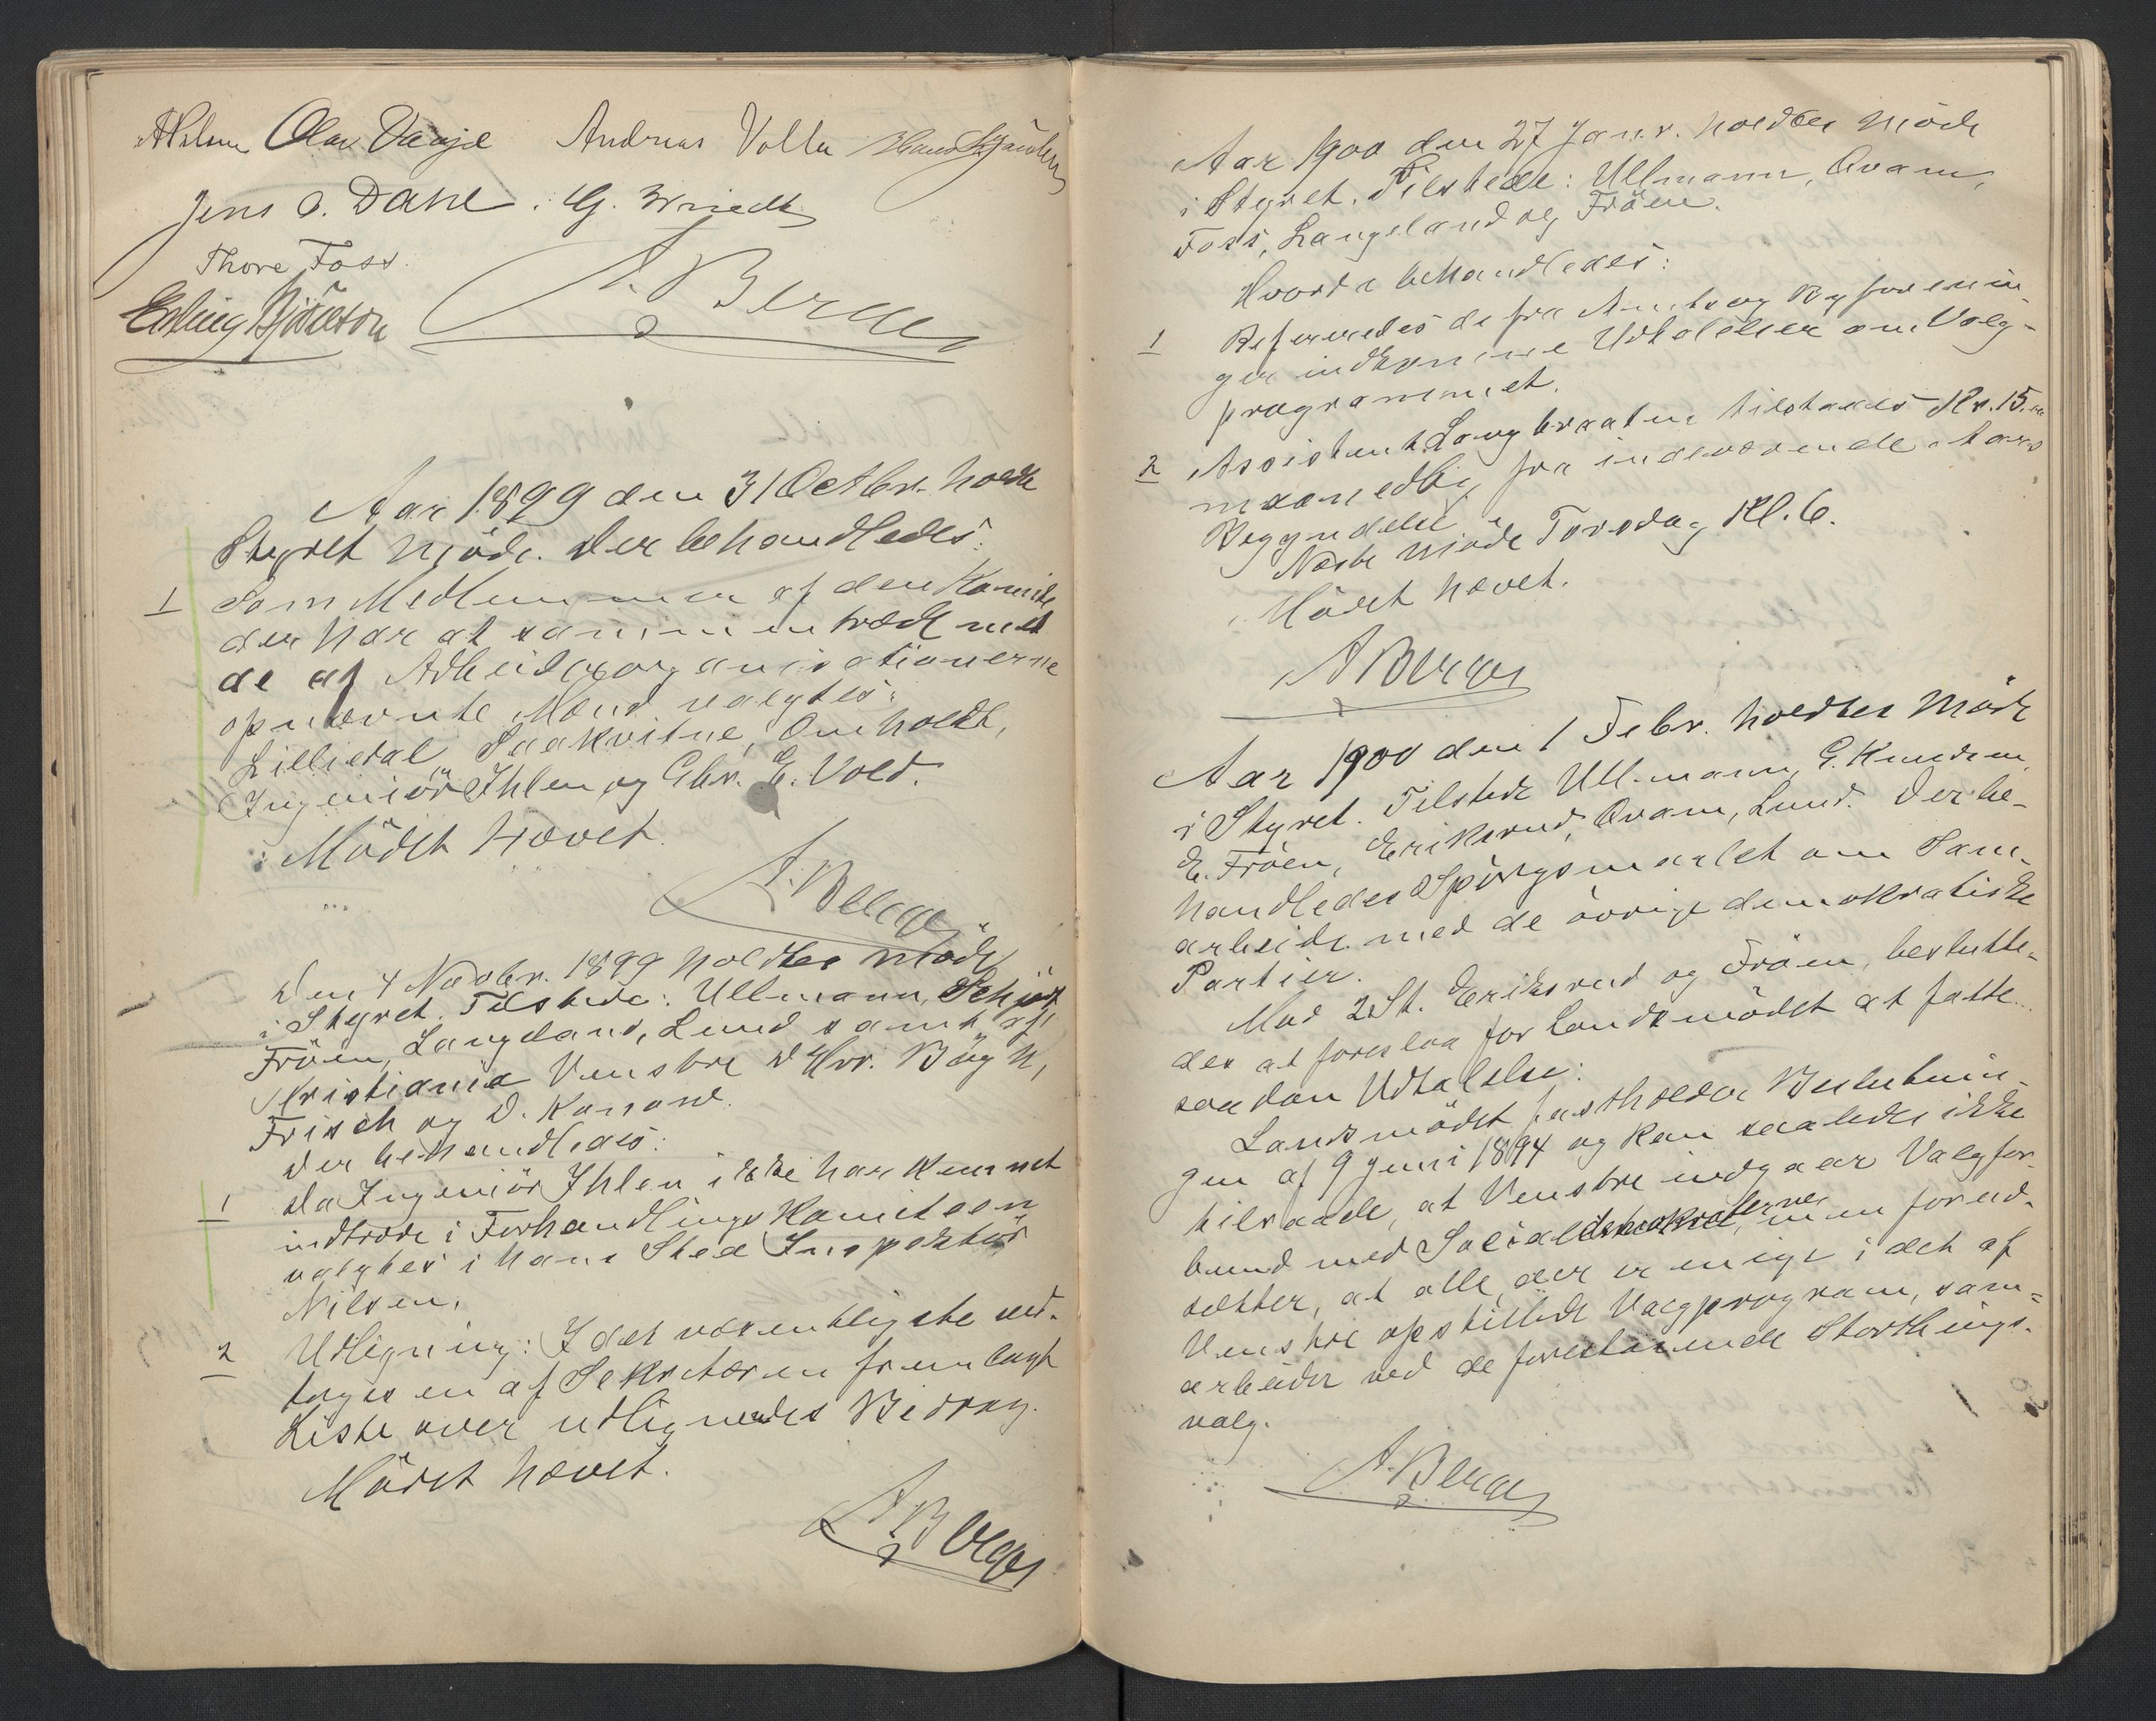 Olav Vaage Andreas Volla
Jens O. Dahl. G. Wriedt
Thore Foss.
Erling Bjørnson
A. Berge
Aar 1899 den 31 Octbr. holdt
Styret Möde. Der behandledes:
1 Som Medlemmer af den Komite
der har at sammentræde med
de af Arbeiderorganisationerne
opnævnte Mænd valgtes:
Lilledal, Saakvitne, Omholdt,
Ingeniör Ihlen og Chr. E. Vold.
Mödet hævet.
A. Berge
Den 4 Novbr. 1899 holdtes Möde
i Styret. Tilstede: Ullmann, Schjöt,
Fröen, Langeland, Lund samt af
Kristiania Venstre D'Hrr. Bögh,
Frisch og D. Konow.
Der behandledes:
1 Da Ingeniör Ihlen ikke har kunnet
indtræde i Forhandlings Komiteen
valgtes i hans Sted Inspektör
Nilsen.
2 Utligning: I det væsentligste ved-
toges en af Sekretæren fremlagt
Liste over utlignedes Bidrag.
Mödet hævet.
A. Berge
Aar 1900 den 27 Janr. holdtes Möde
i Styret. Tilstede: Ullmann, Qvam,
Foss, Langeland og Fröen.
Hvorda behandledes:
1 Refereredes de fra Amts og Byforenin-
ger indkomne Udtalelser om Valg-
programmet.
2 Assistent Langbraaten tilstaaes Kr. 15.00
maanedlig fra indeværende Aars
Begyndelse.
Næste Möde Torsdag Kl. 6.
Mödet hævet.
A Berge
Aar 1900 den 1 Febr. holdtes Möde
i Styret. Tilstede Ullmann, G. Knudsen,
E. Fröen, Eriksrud, Qvam, Lund. Der be-
handledes Spörgsmaalet om Sam-
arbeide med de övrige demokratiske
Partier.
Mod 2 St. Eriksrud og Fröen, beslutte-
des at foreslaa for Landsmödet at fatte
saadan Udtalelse:
Landsmödet fastholder Beslutnin-
gen af 9 Juni 1894 og kan saaledes ikke
tilraade, at Venstre indgaar Valgfor-
bund med Socialdemokraterne, men forud-
sætter, at alle, der er enige i det af
Venstre opstillede Valgprogram, sam-
arbeider ved de forestaaende Storthings-
valg.
A. Berge